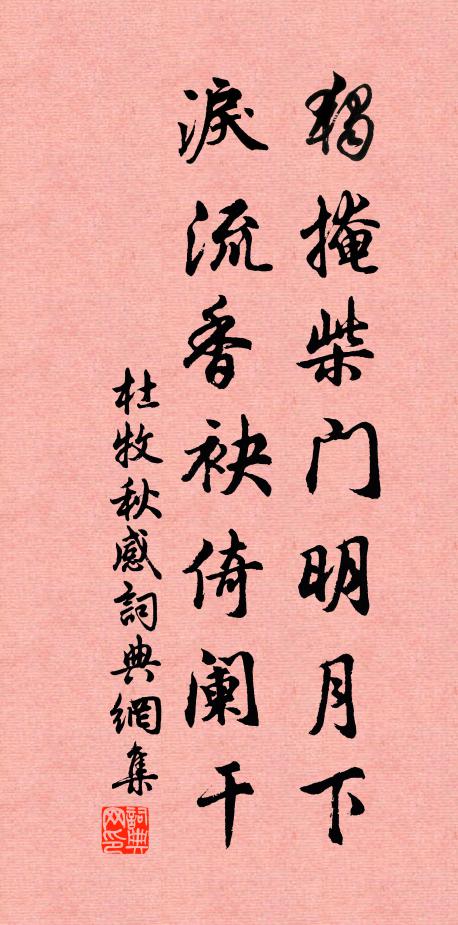 獨掩柴门明月下
淚流香袂倚阑干
杜牧秋感詞典網集
詞典网印